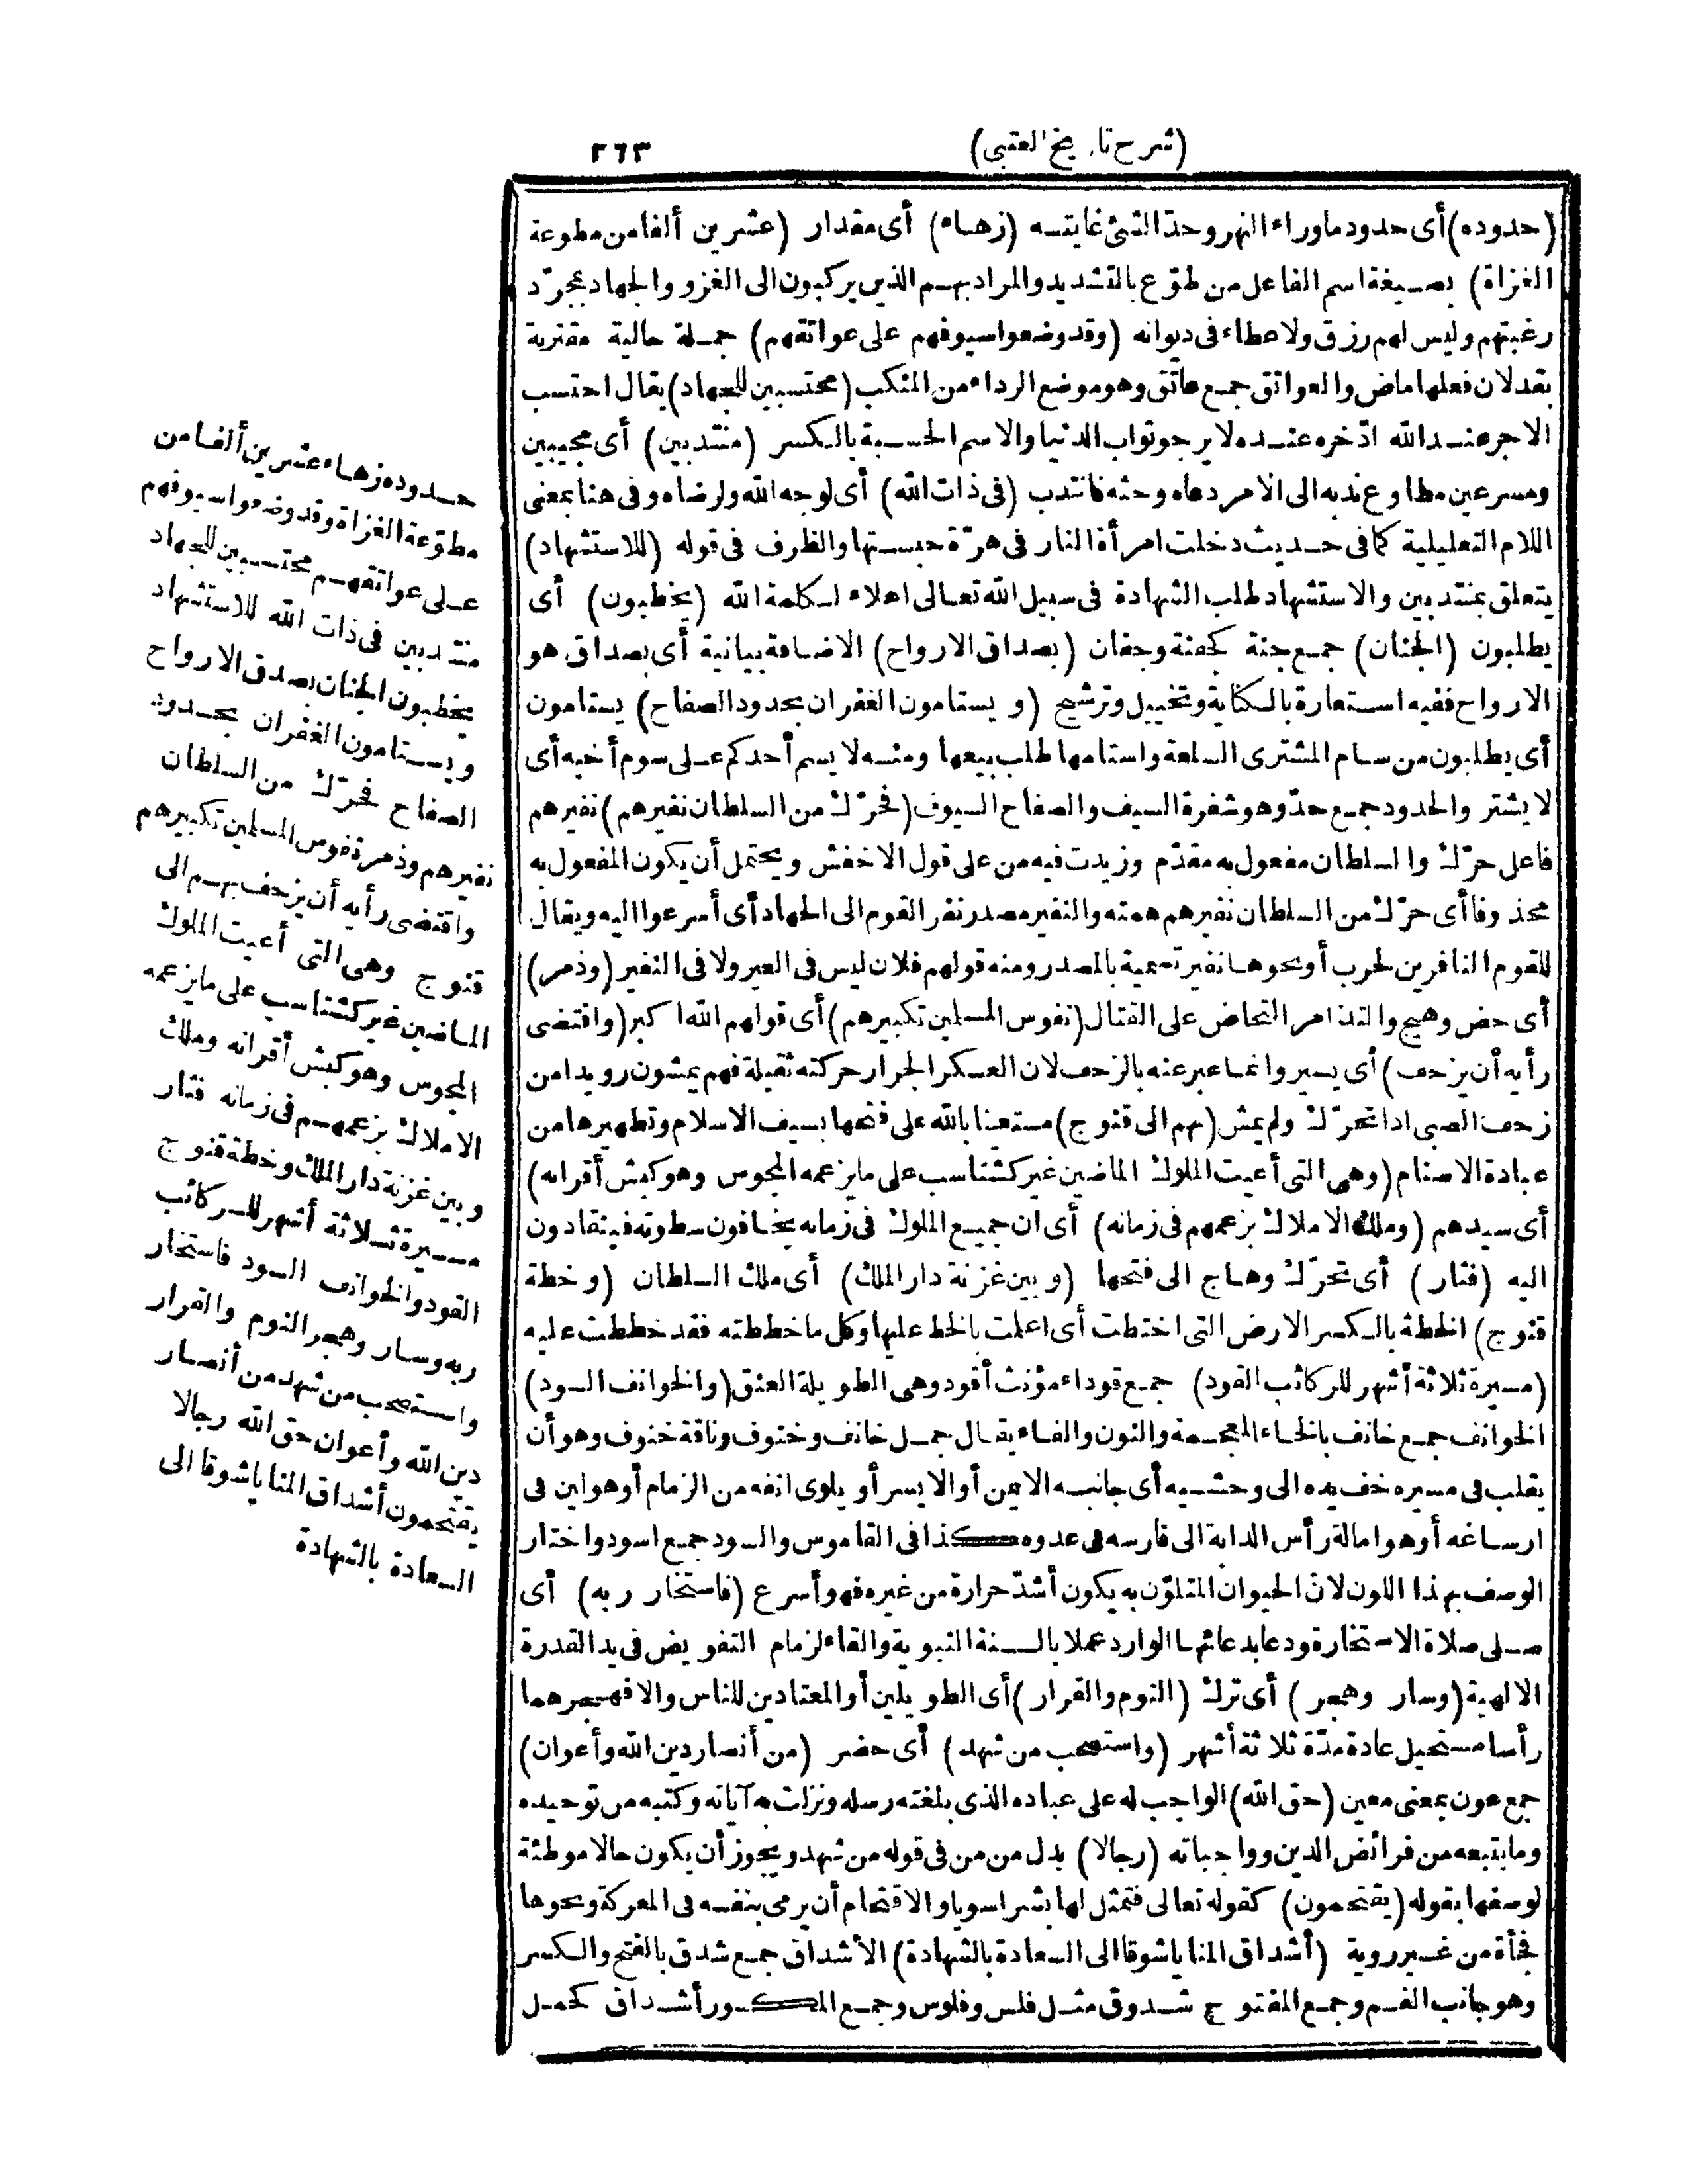 (شرح تاريخ العتبى)
٢٦٣
(حدوده) أى حدود ماوراء النهر وحدّ الشئ غايتــه (زهــاء) أى مقدار (عشرين ألفا من مطوعة
الغزاة) بصـيغة اسم الفاعل من طوّع بالتشديد والمراد بهـم الذين يركبون الى الغزو والجهاد بمجرّد
رغبتهم وليس لهم رزق ولا عطاء فى ديوانه (وقد وضعوا سيوفهم على عواتقهم) جمـلة حالية مقترنة
بقد لان فعلها ماض والعواتق جمـع عاتق وهو موضع الرداء من المنكب (محتسبين للجهاد) يقال احتسب
الاجر عنــد الله ادّخره عنــده لا يرجو ثواب الدنيا والاسم الحسـبة بالـكسر (منتدبين) أى مجيبين
ومسرعين مطاوع ندبه الى الامر دعاه وحثه فانتدب (فى ذات الله) أى لوجه الله ولرضاه وفى هنا بمعنى
اللام التعليلية كما فى حــديث دخلت امرأة النار فى هرّة حبســتها والظرف فى قوله (للاستشهاد)
يتعلق بمنتدبين والاستشهاد طلب الشهادة فى سبيل الله تعـالى اعلاء لـكلمة الله (يخطبون) أى
يطلبون (الجنان) جمـع جنة كجفنة وجفان (بصداق الارواح) الاضـافة بيانية أى بصداق هو
الارواح ففيه اسـتعارة بالـكناية وتخييل وترشيح (ويستامون الغفران بحدود الصفاح) يستامون
أى يطلبون من سـام المشترى السلعة واستامها طلب بيعها ومنـه لا يسم أحدكم عـلى سوم أخيه أى
لا يشتر والحدود جمـع حدّ وهو شفرة السيف والصفاح السيوف (فحرّك من السلطان نفيرهم) نفيرهم
فاعل حرّك والسلطان مفعول به مقدّم وزيدت فيه من على قول الاخفش ويحتمل أن يكون المفعول به
محذوفا أى حرّك من السلطان نفيرهم همته والنفير مصدر نفر القوم الى الجهاد أى أسرعوا اليه ويقال
للقوم النافرين لحرب أو نحوهـا نفير تسمية بالمصدر ومنه قولهم فلان ليس فى العير ولا فى النفير (وذمر)
أى حض وهيج والتذامر التحاض على القتال (نفوس المسلمين تكبيرهم) أى قولهم الله اكبر (واقتضى
رأيه أن يزحف) أى يسير وانمـا عبر عنه بالزحف لان العسكر الجرار حركته ثقيلة فهم يمشون رويدا من
زحف الصبى اذا تحرّك ولم يمش (بهم الى قنوج) مستعينا بالله على فتحها بسيف الاسلام وتطهيرها من
عبادة الاصنام (وهى التى أعيت الملوك الماضين غير كشتاسب على ما يزعمه المجوس وهو كبش أقرانه)
أى سيدهم (وملك الاملاك بزعمهم فى زمانه) أى ان جميـع الملوك فى زمانه يخـافون سطوته فينقادون
اليه (فثار) أى تحرّك وهـاج الى فتحها (وبين غزنة دار الملك) أى ملك السلطان (وخطة
قنوج) الخطة بالـكسر الارض التى اختطت أى اعلمت بالخط عليها وكل ما خططته فقد خططت عليه
(مسيرة ثلاثة أشهر للركائب القود) جمـع قوداء مؤنث أقود وهى الطويلة العنق (والخوانف السود)
الخوانف جمـع خانف بالخـاء المعجـمة والنون والفـاء يقـال جمـل خانف وخنوف وناقة خنوف وهو أن
يقلب فى مسيره خف يده الى وحشـيه أى جانبـه الايمن أو الايسر أو يلوى انفه من الزمام أو هو لين فى
ارسـاغه أو هو امالة رأس الدابة الى فارسه فى عدوه كذا فى القاموس والسود جمـع اسود واختار
الوصف بهذا اللون لان الحيوان المتلوّن به يكون أشدّ حرارة من غيره فهو أسرع (فاستخار ربه) أى
صـلى صلاة الاستخارة ودعا بدعائهـا الوارد عملا بالــسنة النبوية والقاء لزمام التفويض فى يد القدرة
الالهية (وسار وهجر) أى ترك (النوم والقرار) أى الطويلين أو المعتادين للناس والا فهـجرهما
رأسا مستحيل عادة مدّة ثلاثة أشهر (واستصحب من شهد) أى حضر (من أنصار دين الله وأعوان)
جمع عون بمعنى معين (حق الله) الواجب له على عباده الذى بلغته رسله ونزلت به آياته وكتبه من توحيده
وما يتبعه من فرائض الدين وواجباته (رجالا) بدل من من فى قوله من شهد ويجوز أن يكون حالا موطئة
لوصفها بقوله (يقتحمون) كقوله تعالى فتمثل لها بشرا سويا والاقتحام أن يرمى بنفسه فى المعركة ونحوها
فجأة من غــير روية (أشداق المنايا شوقا الى السعادة بالشهادة) الأشداق جمع شدق بالفتح والـكسر
وهو جانب الفـم وجمـع المفتوح شــدوق مثـل فلس وفلوس وجمـع المكسور أشـداق كحمـل
حــدوده زهـاء عشرين ألفـا من
مطوّعة الغزاة وقد وضعوا سيوفهم
عـلى عواتقهـم محتسـبين للجهاد
منتـدبين فى ذات الله للاستشهاد
يخطبون الجنان بصدق الارواح
ويسـتامون الغفران بحـدود
الصفاح فحرّك من السلطان
نفيرهم وذمرة نفوس المسلمين تكبيرهم
واقتضى رأيه أن يزحف بهـم الى
قنوج وهى التى أعيت الملوك
المـاضين غير كشتاسب على ما يزعمه
المجوس وهو كبش أقرانه وملك
الاملاك بزعمهـم فى زمانه فثار
وبين غزنة دار الملك وخطة قنوج
مسـيرة ثـلاثة أشهر للـركائب
القود والخوانف السود فاستخار
ربه وسـار وهجر النوم والقرار
واسـتصحب من شهد من أنصـار
دين الله وأعوان حق الله رجالا
يقتحمون أشداق المنايا شوقا الى
السـعادة بالشهادة